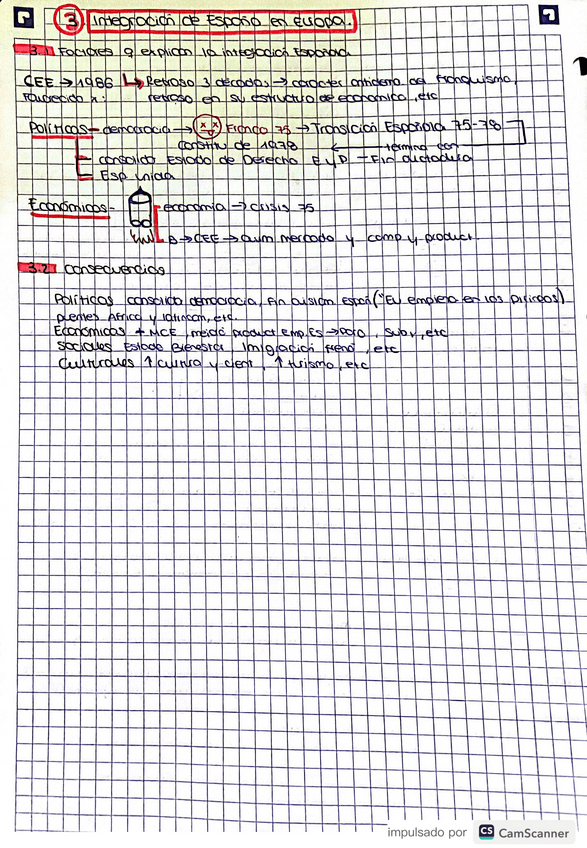 3 Integración de España en Europa.
3.1 Factores q explican la integración Española
CEE → 1986 ↳ Retraso 3 décadas → carácter antidemo del franquismo,
Favorecido x: retraso en su estructura de económica, etc
Políticos - democracia → Franco 75 → Transición Española 75-78
constitu de 1978 ← termina con
consolida Estado de Derecho E y D - Fin dictadura
Esp unida
Económicos - economía → crisis 75
B → CEE → aum mercado y comp y product.
3.2 Consecuencias
Políticas consolida democracia, fin cusión Espai ("Eu empieza en los Pirineos)
puentes Africa y latinoam, etc.
Económicas + MCE, mejió product emp. ES → paro, subv, etc
sociales Estado Bienestar Imigración frenó, etc
Culturales ↑ cultura y cient, ↑ turismo, etc
impulsado por CS CamScanner